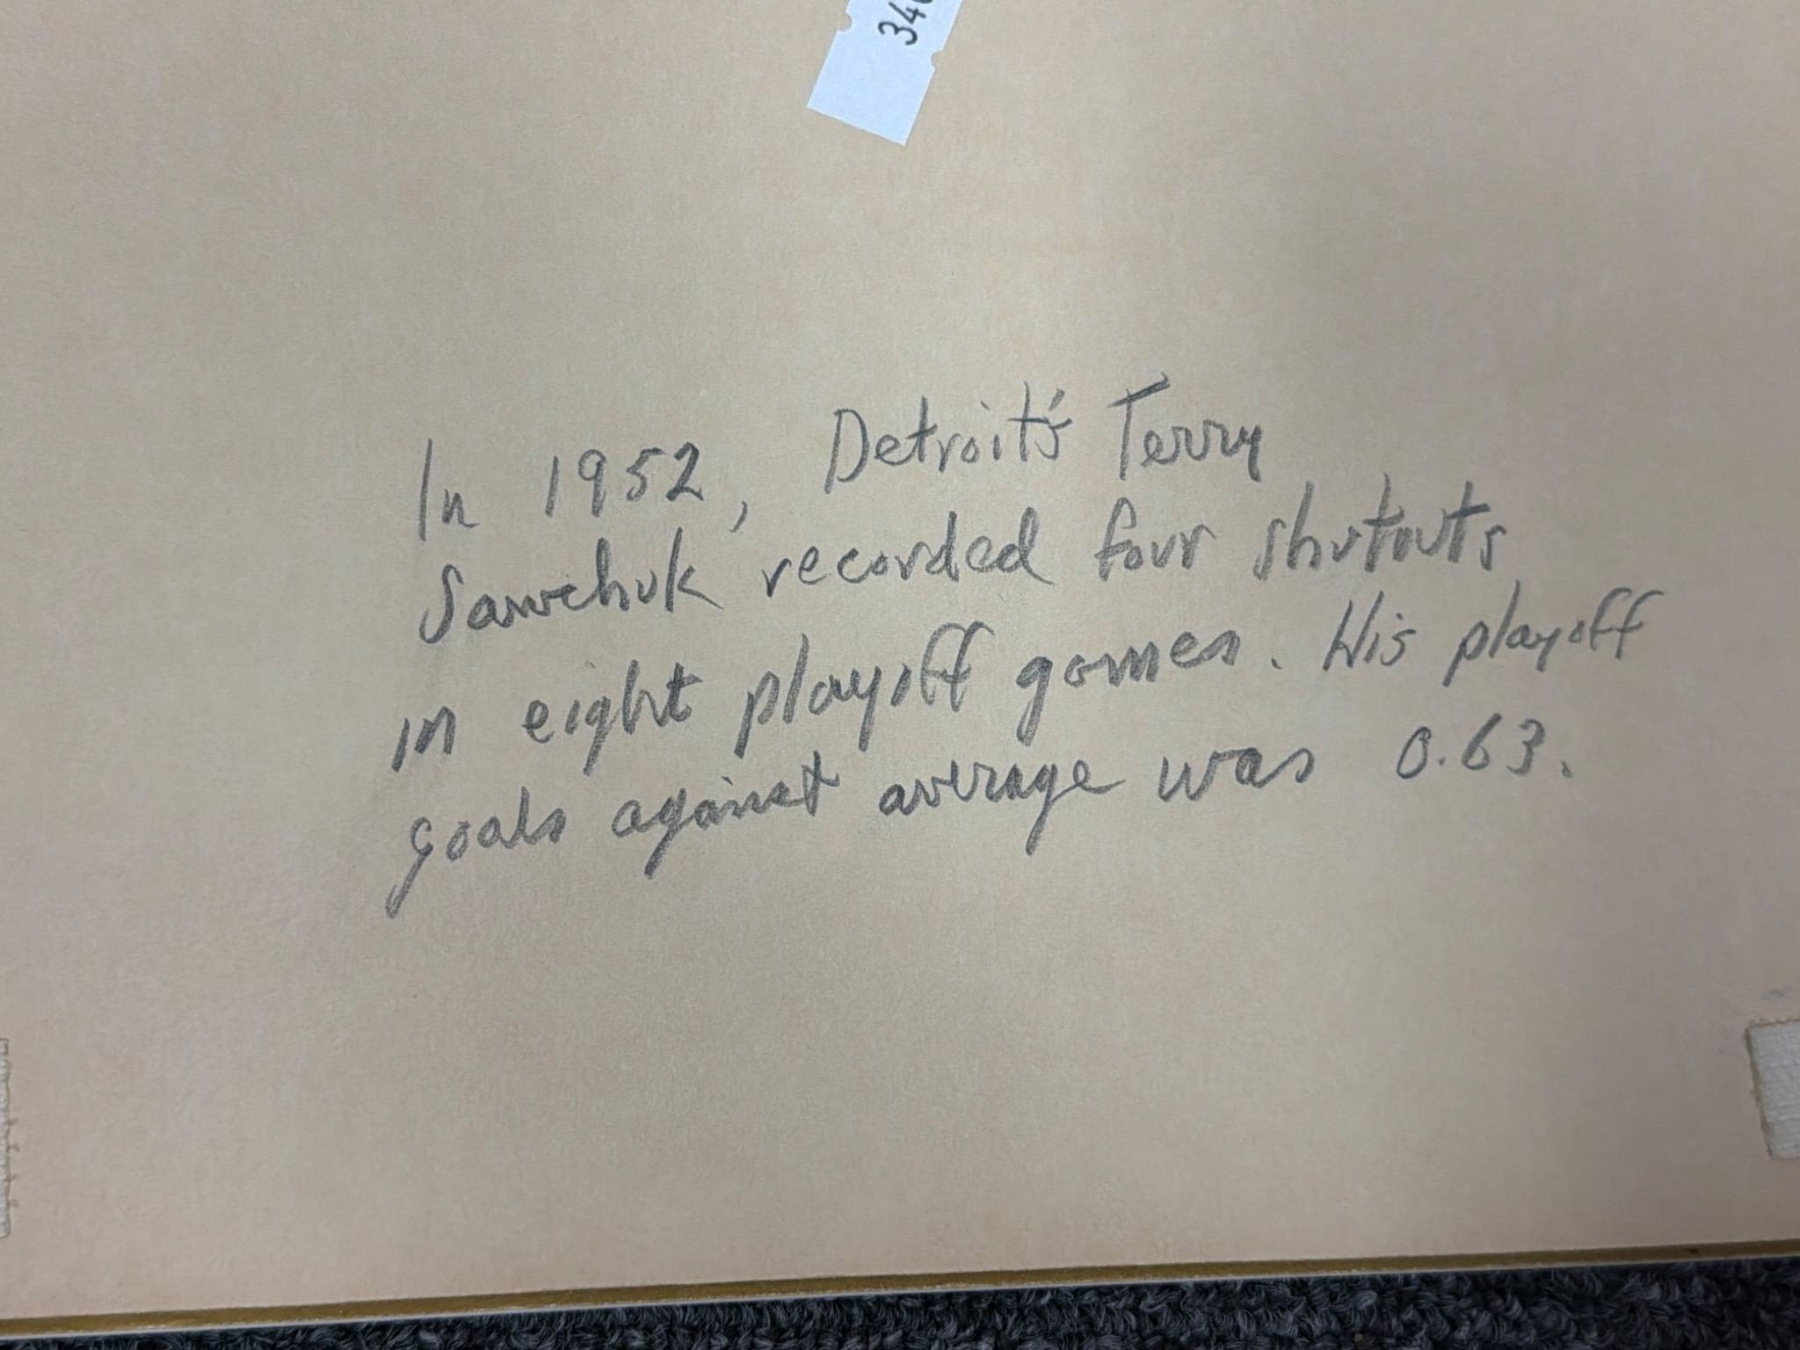 In 1952, Detroit's Terry
Sawchuk recorded four shutouts
in eight playoff games. His playoff
goals against average was 0.63.